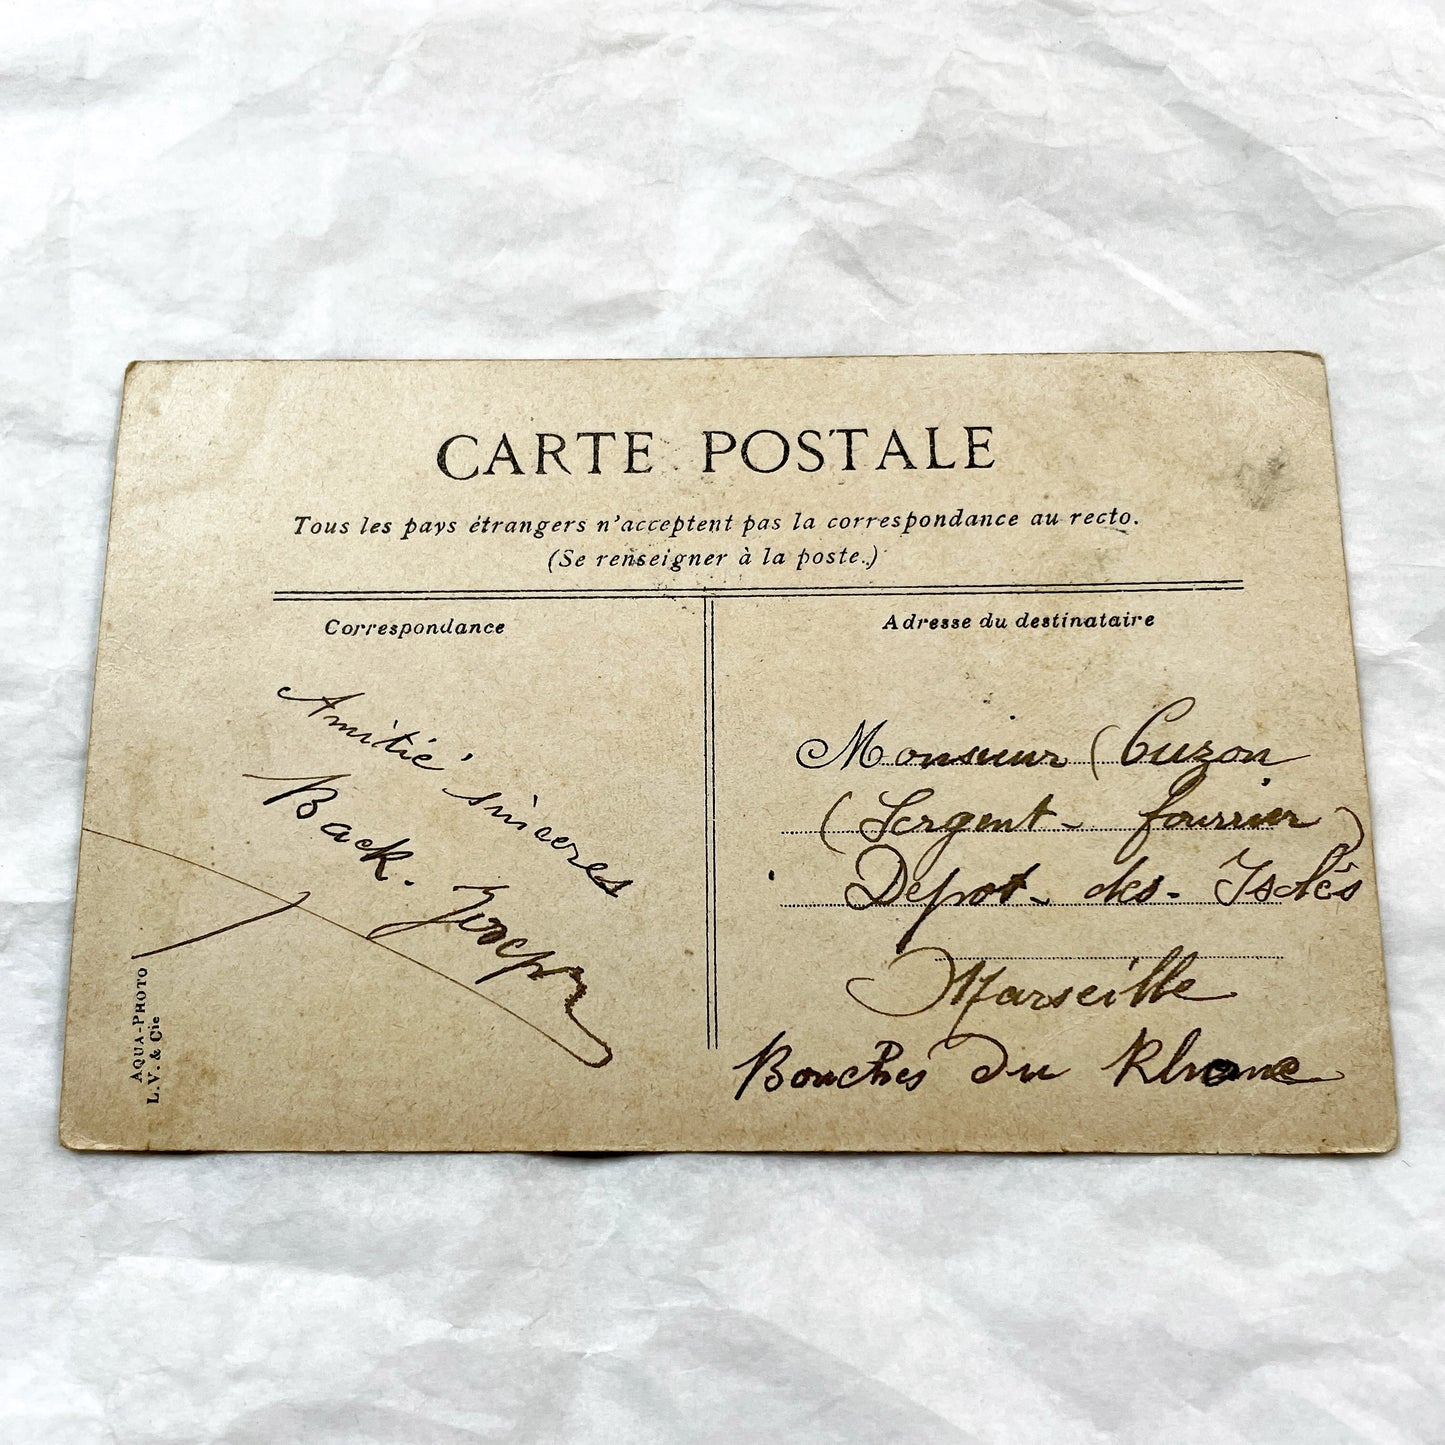 CARTE POSTALE
Tous les pays étrangers n'acceptent pas la correspondance au recto.
(Se renseigner à la poste.)
Correspondance
Adresse du destinataire
Amitié sincères
Back. Joseph
Monsieur Cuzon
(Sergent-fourrier)
Depot-des-Isolés
Marseille
Bouches Du Rhone
AQUA-PHOTO
L.V. & Cie